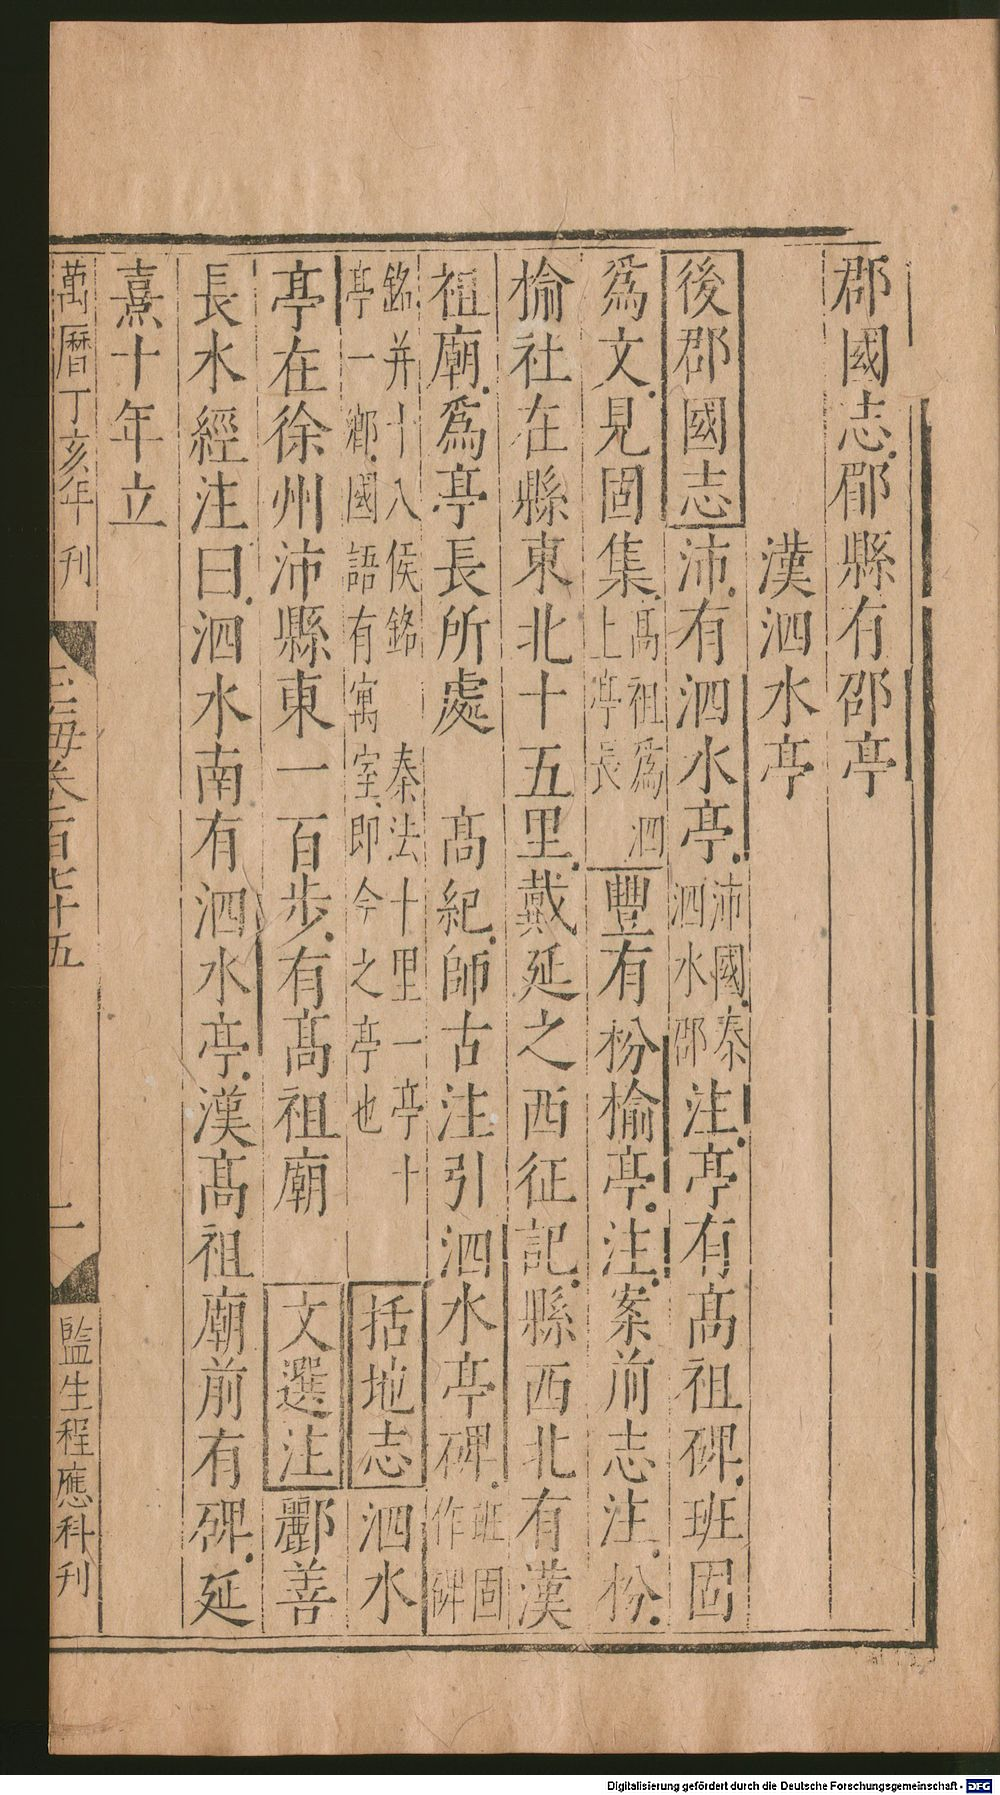 郡國志郿縣有邵亭
漢泗水亭
後郡國志沛有泗水亭沛國秦泗水郡注亭有髙祖碑班固
爲文見固集髙祖爲泗上亭長豐有枌榆亭注案前志注枌
榆社在縣東北十五里戴延之西征記縣西北有漢
祖廟爲亭長所處 髙紀師古注引泗水亭碑班固作碑
銘并十八侯銘 秦法十里一亭十亭一鄉國語有寓室即今之亭也 括地志泗水
亭在徐州沛縣東一百步有髙祖廟 文選注酈善
長水經注曰泗水南有泗水亭漢髙祖廟前有碑延
熹十年立
萬曆丁亥年刊 玉海卷一百七十五 二 監生程應科刋
Digitalisierung gefördert durch die Deutsche Forschungsgemeinschaft - DFG